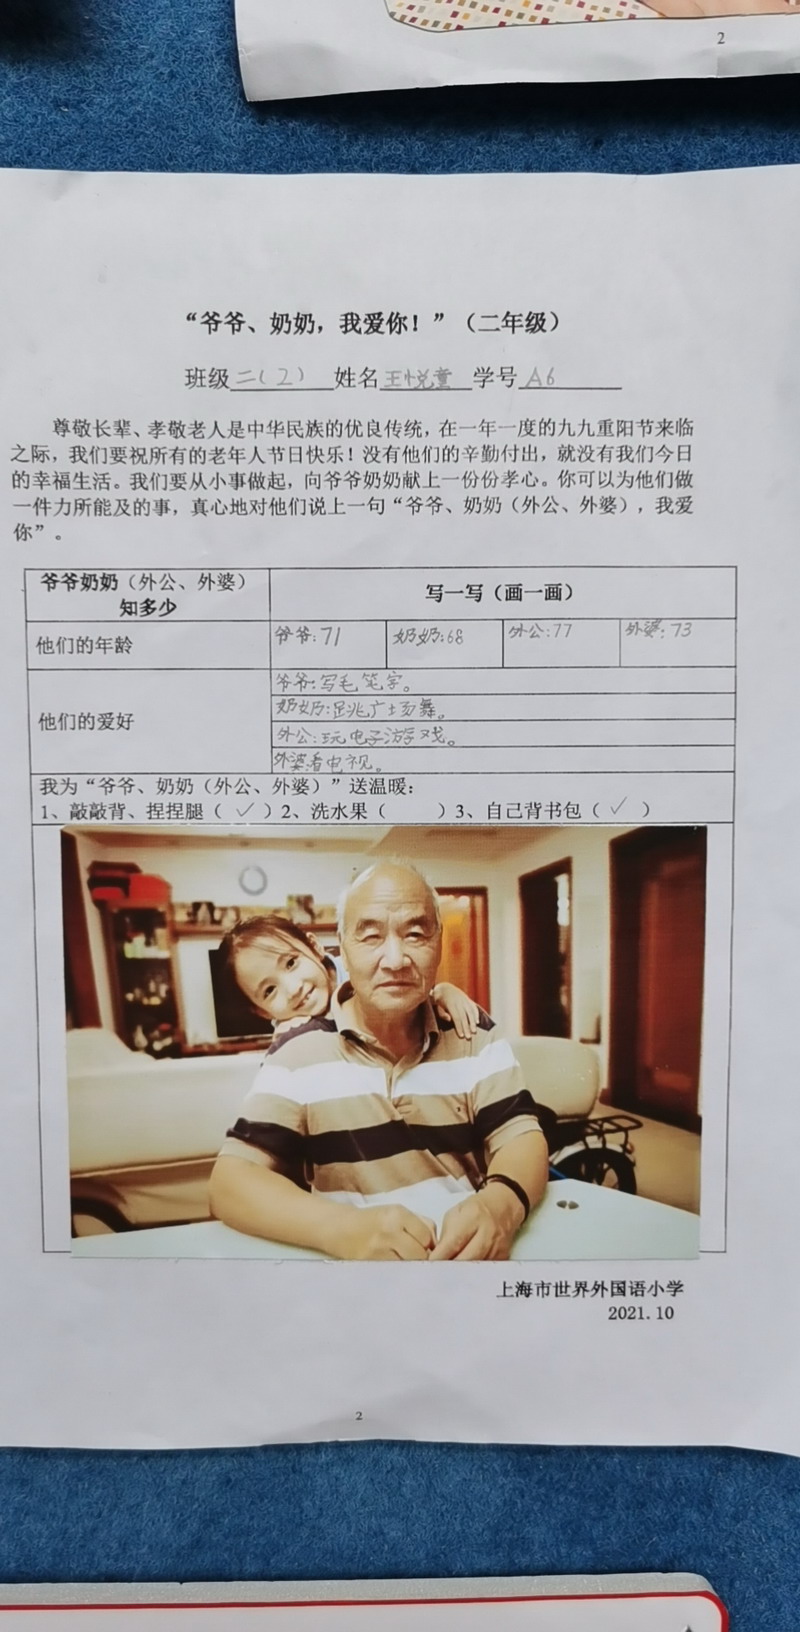 2
“爷爷、奶奶，我爱你！”（二年级）
班级二(2) 姓名王悦童 学号A6
尊敬长辈、孝敬老人是中华民族的优良传统，在一年一度的九九重阳节来临
之际，我们要祝所有的老年人节日快乐！没有他们的辛勤付出，就没有我们今日
的幸福生活。我们要从小事做起，向爷爷奶奶献上一份份孝心。你可以为他们做
一件力所能及的事，真心地对他们说上一句“爷爷、奶奶（外公、外婆），我爱
你”。
爷爷奶奶（外公、外婆）
知多少
写一写（画一画）
他们的年龄
爷爷:71
奶奶:68
外公:77
外婆:73
他们的爱好
爷爷:写毛笔字。
奶奶:跳广场舞。
外公:玩电子游戏。
外婆看电视。
我为“爷爷、奶奶（外公、外婆）”送温暖：
1、敲敲背、捏捏腿（ ✓ ）2、洗水果（ ）3、自己背书包（ ✓ ）
上海市世界外国语小学
2021.10
2